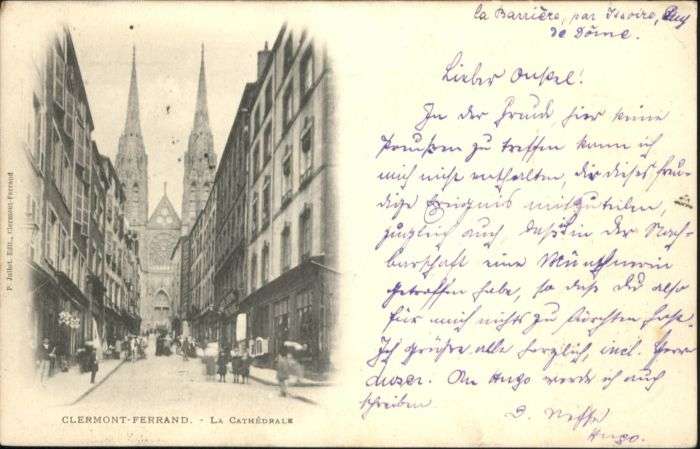 la Barrière, par Issoire, Puy
de Dôme.
Lieber Onkel!
In der Freude, hier keine
Preußen zu treffen kann ich
mich nicht enthalten, dir dieses freu-
dige Ereignis mitzuteilen,
zugleich auch, daß in der Nach-
barschaft eine Münchnerin
getroffen habe, so daß du also
für mich nichts zu fürchten hast.
Ich grüße alle herzlich, incl. Herr
An Hugo werde ich auch
schreiben.
D. Neffe
Hugo.
P. Juliot, Edit., Clermont-Ferrand
CLERMONT-FERRAND. - LA CATHÉDRALE